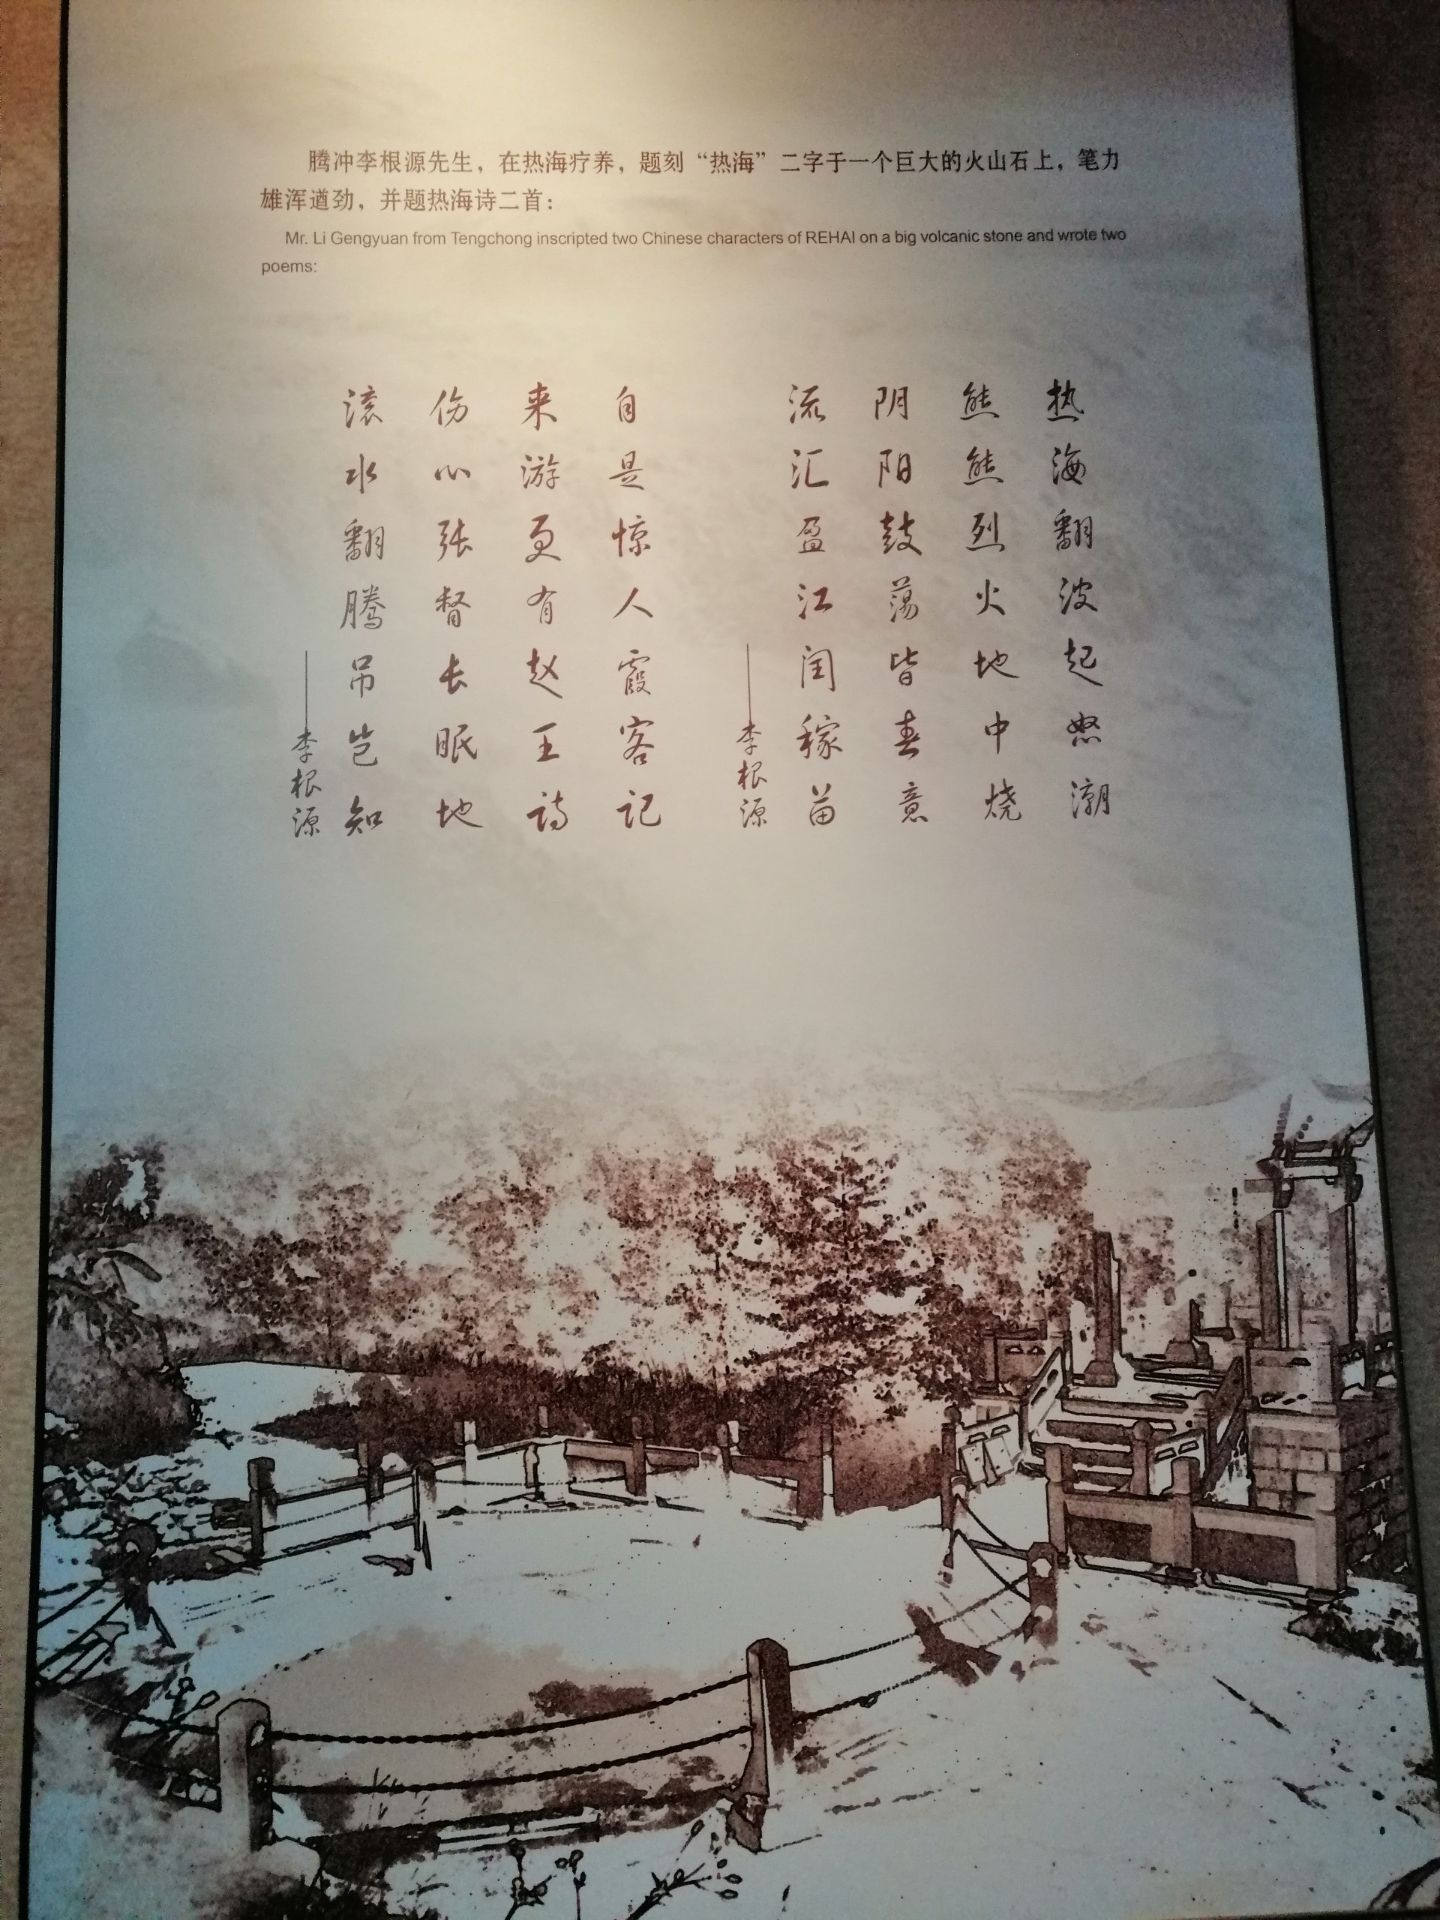 腾冲李根源先生，在热海疗养，题刻“热海”二字于一个巨大的火山石上，笔力
雄浑遒劲，并题热海诗二首：
Mr. Li Gengyuan from Tengchong inscripted two Chinese characters of REHAI on a big volcanic stone and wrote two
poems:
热海翻波起怒潮
熊熊烈火地中烧
阴阳鼓荡皆春意
流汇盈江闰稼苗
——李根源
自是惊人霞客记
来游更有赵王诗
伤心张督长眠地
滚水翻腾吊岂知
——李根源